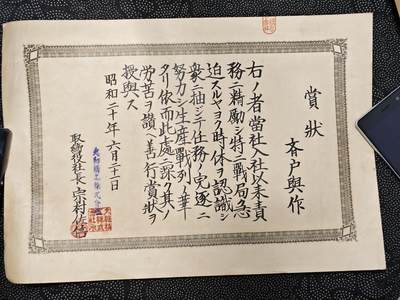 賞狀
斎戸與作
右ノ者當社入社以来責
務ニ精勵シ特ニ戰局急
迫スルヤヨク時休ヲ認識シ
衆ニ抽ンデ任務ノ完遂ニ
努力シ生産戰列ノ華
タリ依而此處ニ深ク其ノ
労苦ヲ讃ヘ善行賞狀ヲ
授與ス
昭和二十年六月二十二日
取締役社長宗村佐信